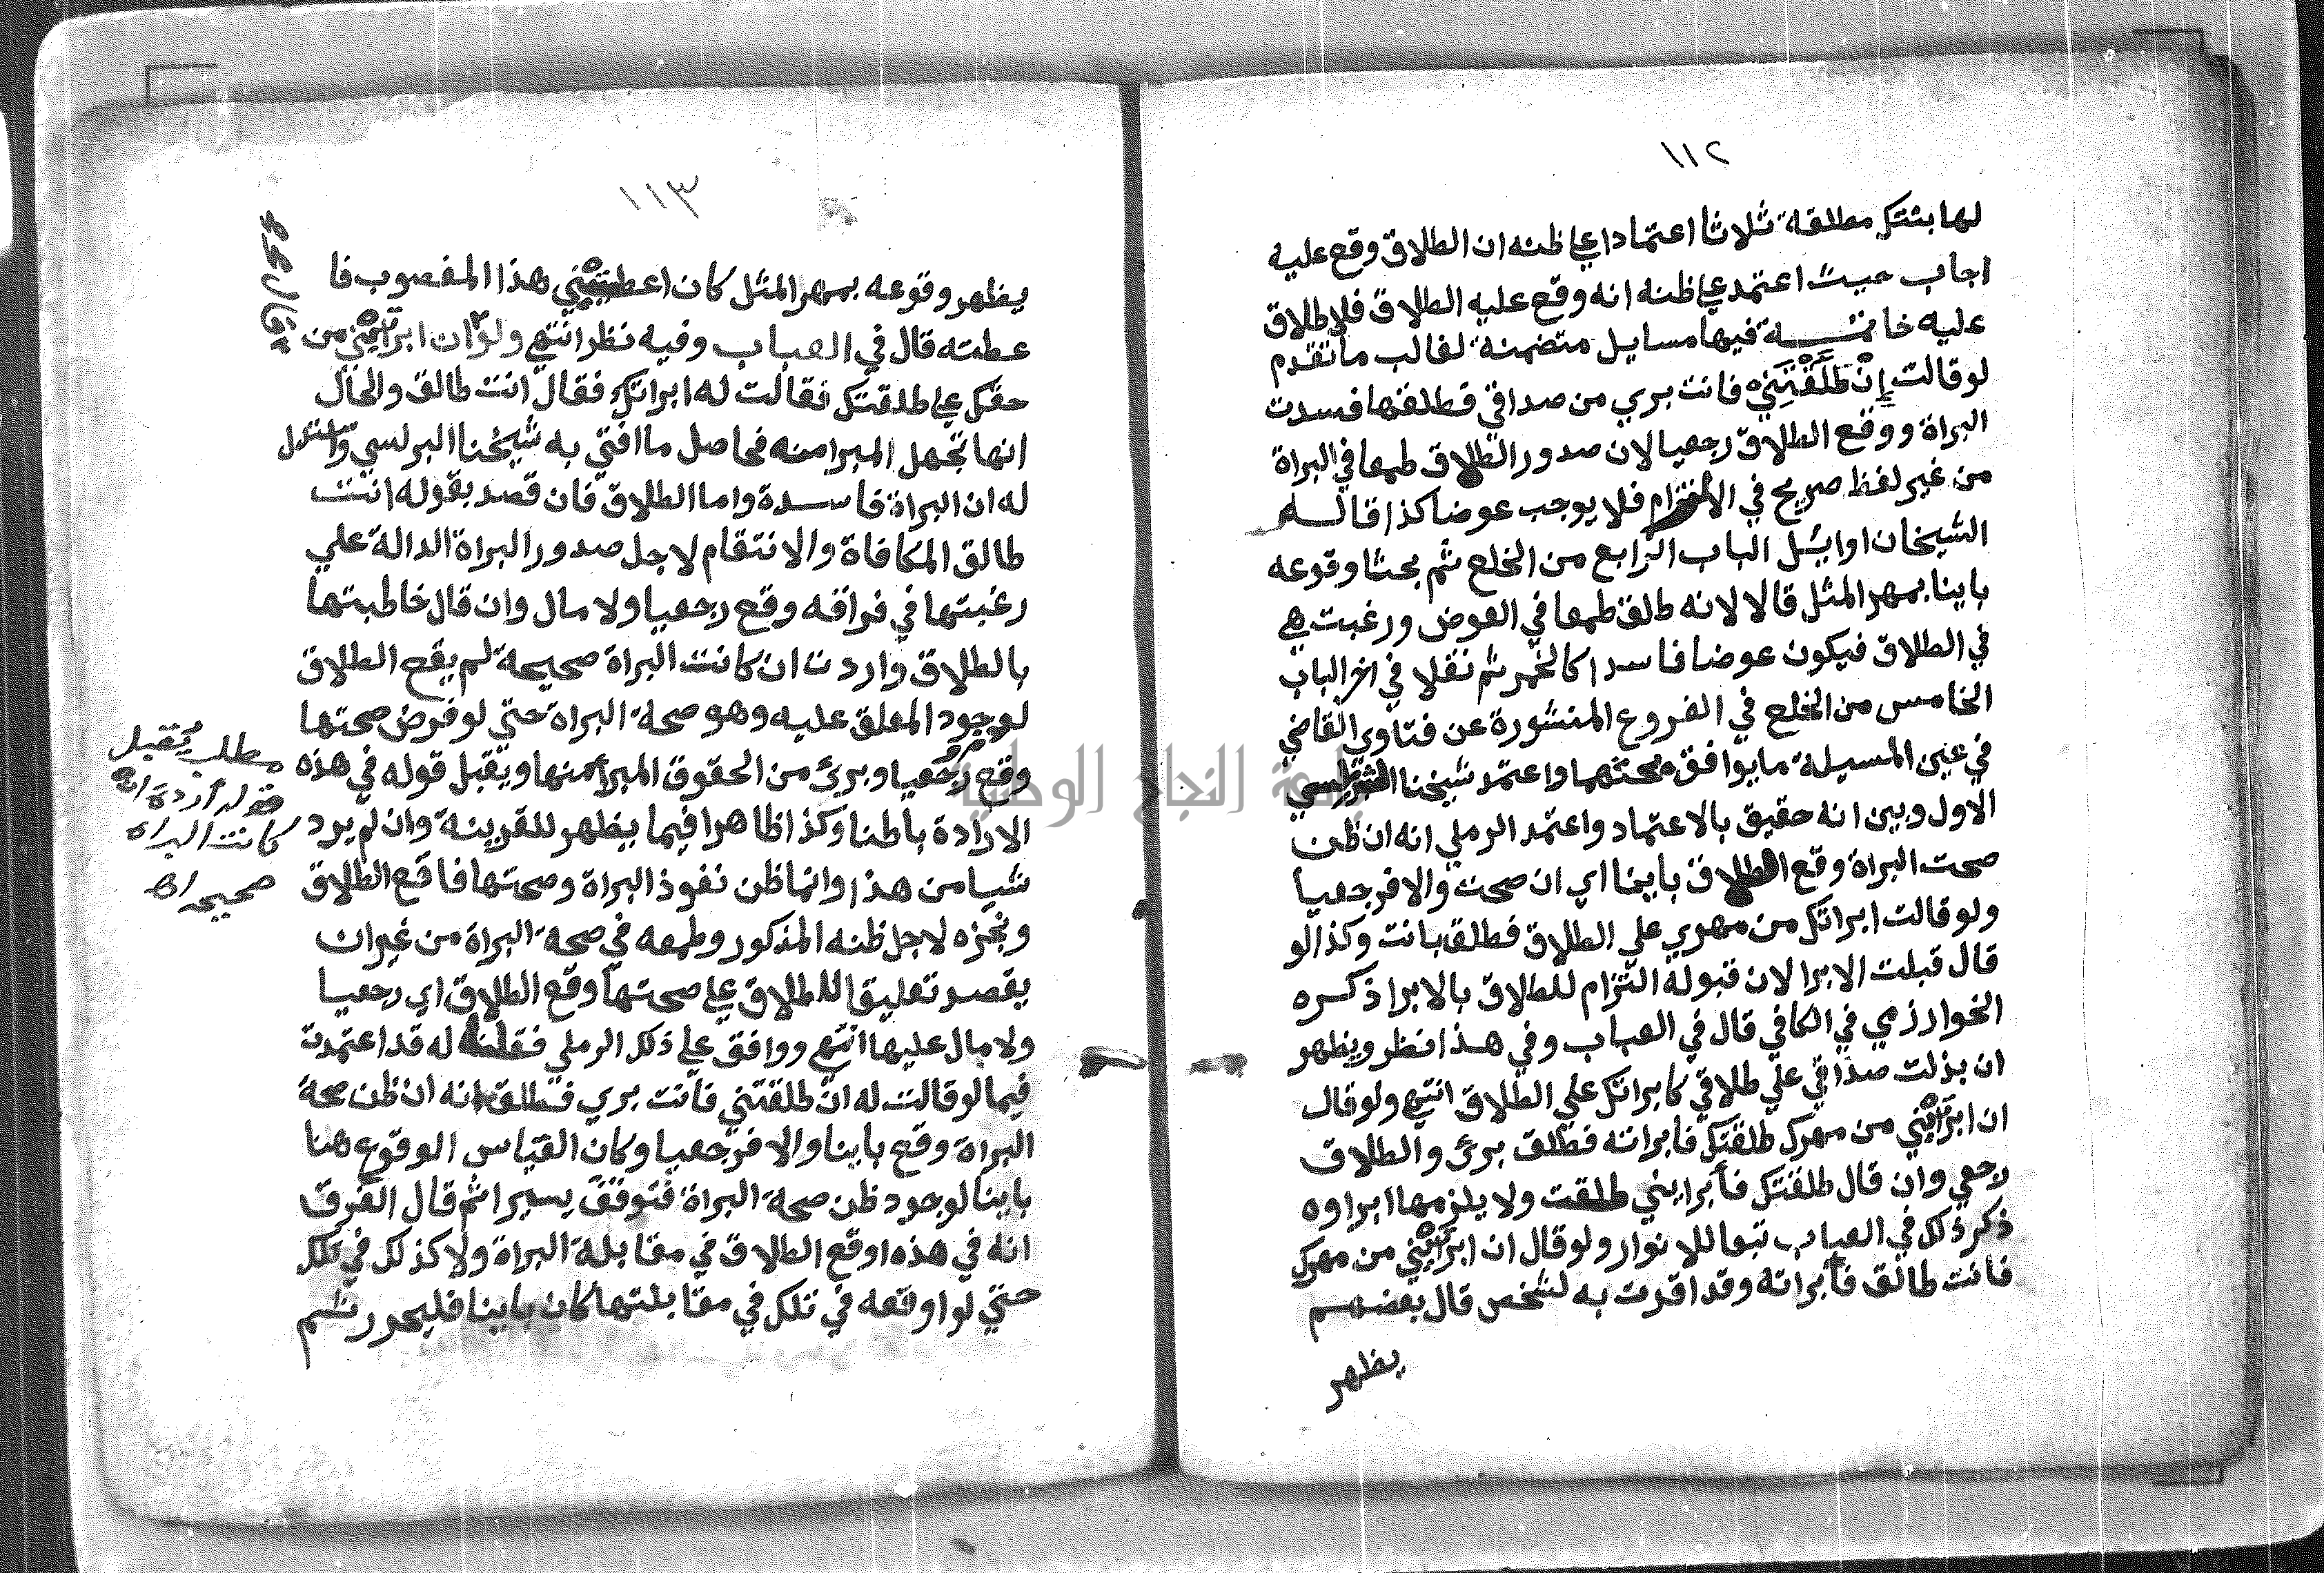 ١١٢
لها بنتك مطلقة ثلاثا اعتمادا علي ظنه ان الطلاق وقع عليه
اجاب حيث اعتمد علي ظنه انه وقع عليه الطلاق فلا طلاق
عليه خاتمة فيها مسايل متضمنة لغالب ما تقدم
لو قالت إنْ طَلَّقْتَنِي فانت بري من صداقي فطلقها فسدت
البراة ووقع الطلاق رجعيا لان صدور الطلاق طمعا في البراة
من غير لفظ صريح في الالتزام فلا يوجب عوضا كذا قاله
الشيخان اوايل الباب الرابع من الخلع ثم بحثا وقوعه
باينا بمهر المثل قالا لانه طلق طمعا في العوض ورغبت هي
في الطلاق فيكون عوضا فاسدا كالخمر ثم نقلا في اخر الباب
الخامس من الخلع في الفروع المنشورة عن فتاوي القاضي
في عين المسيلة ما يوافق بحثهما واعتمد شيخنا البرلسي
الاول وبين انه حقيق بالاعتماد واعتمد الرملي انه ان ظن
صحت البراة وقع الطلاق باينا اي ان صحت والا فرجعيا
ولو قالت ابراتك من مهري علي الطلاق فطلق بانت وكذا لو
قال قبلت الابرا لان قبوله التزام للطلاق بالابرا ذكره
الخوارزمي في الكافي قال في العباب وفي هذا نظر ويظهر
ان بذلت صداقي علي طلاقي كابراتك علي الطلاق انتهي ولو قال
ان ابراتيني من مهرك طلقتك فابراته فطلق برئ والطلاق
رجعي وان قال طلقتك فأبرايني طلقت ولا يلزمها ابراوه
ذكر ذلك في العباب تبعا للانوار ولو قال ان ابراتيني من مهرك
فانت طالق فأبراته وقد اقرت به لشخص قال بعضهم
يظهر
١١٣
يظهر وقوعه بمهر المثل كان اعطيتيني هذا المغصوب فا
عطته قال في العباب وفيه نظر انتهي ولو ان ابراتيني من
حقك علي طلقتك فقالت له ابراتك فقال انت طالق والحال
انها تجهل المبرا منه فحاصل ما افتي به شيخنا البرلسي واستدل
له ان البراة فاسدة واما الطلاق فان قصد بقوله انت
طالق المكافاة والانتقام لاجل صدور البراة الدالة علي
رغبتها في فراقه وقع رجعيا ولا مال وان قال خاطبتها
بالطلاق واردت ان كانت البراة صحيحة لم يقع الطلاق
لوجود المعلق عليه وهو صحة البراة حتي لو فرض صحتها
وقع رجعيا وبرئ من الحقوق المبرأ منها ويقبل قوله في هذه
الارادة باطنا وكذا ظاهرا فيما يظهر للقرينة وان لم يرد
شيا من هذا وانما ظن نفوذ البراة وصحتها فاقع الطلاق
ونجزه لاجل ظنه المذكور وطمعه في صحة البراة من غير ان
يقصد تعليقا للطلاق علي صحتها وقع الطلاق اي رجعيا
ولا مال عليها انتهي ووافق علي ذلك الرملي فقلت له قد اعتمدت
فيما لو قالت له ان طلقتني فانت بري فطلق انه ان ظن صحة
البراة وقع باينا والا فرجعيا وكان القياس الوقوع هنا
باينا لوجود ظن صحة البراة فتوقف يسيرا ثم قال الفرق
انه في هذه اوقع الطلاق في مقابلة البراة ولا كذلك في تلك
حتي لو اوقعه في تلك في مقابلتها كان باينا فليحرر ثم
مطلب يقبل
قوله أردت ان
كانت البراة
صحيحة اه
جامعة النجاح الوطنية